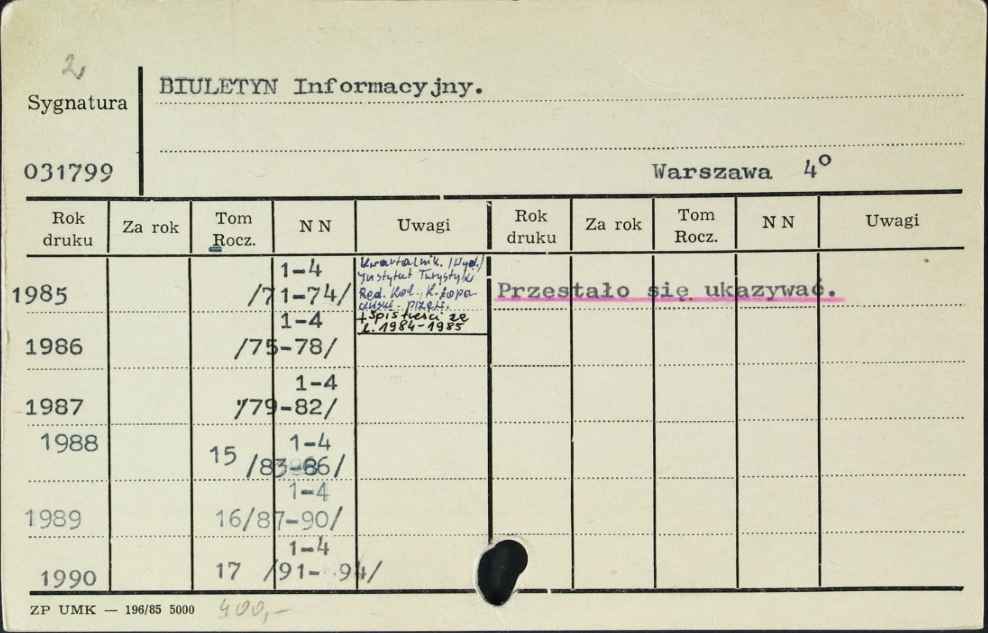 2
BIULETYN Informacyjny.
Sygnatura
031799
Warszawa 4°
Rok druku Za rok Tom Rocz. N N Uwagi Rok druku Za rok Tom Rocz. N N Uwagi
1-4 Kwartalnik. /Wyd./
Instytut Turystyki
1985 /71-74/ Red. Kol. K. Łopa- Przestało się ukazywać.
1-4 + Spis treści ze
z. 1984-1985
1986 /75-78/
1-4
1987 /79-82/
1988 15 1-4
/83-86/
1-4
1989 16/87-90/
1-4
1990 17 /91-94/
ZP UMK — 196/85 5000 400,-